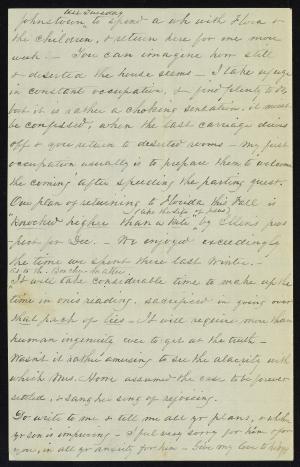 last Tuesday
Johnstown to spend a wk with Flora &
the children, & return here for one more
week. — You can immagine how still
& deserted the house seems — I take refuge
in constant occupation, & find plenty to do
but it is rather a choking sensation, it must
be confessed, when the last carriage drives
off & you return to deserted rooms — My first
occupation usually is to prepare them to "welcome
the coming" after speeding the parting guest.
Our plan of returning to Florida this Fall is
"Knocked higher than a kite" by Ellen's
for Dec. — We enjoyed exceedingly
the time we spent there last Winter. —
As to the Beecher matter
"It will take considerable time to make up the
time in one's reading, sacrificed in going over
that pack of lies — It will require more than
human ingenuity ever to get at the truth —
Wasn't it rather amusing to see the alacrity with
which Mrs. assumed the case to be forever
settled, & sang her song of rejoicing.
Do write to me & tell me all yr plans, & whether
yr son is improving — I feel very sorry for him & for
you, in all yr anxiety for him — Give my love to